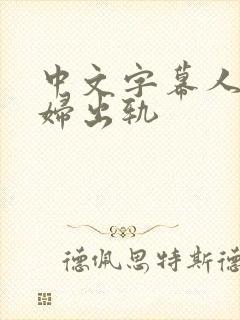 中文字幕人
婦出轨
德佩思特斯德